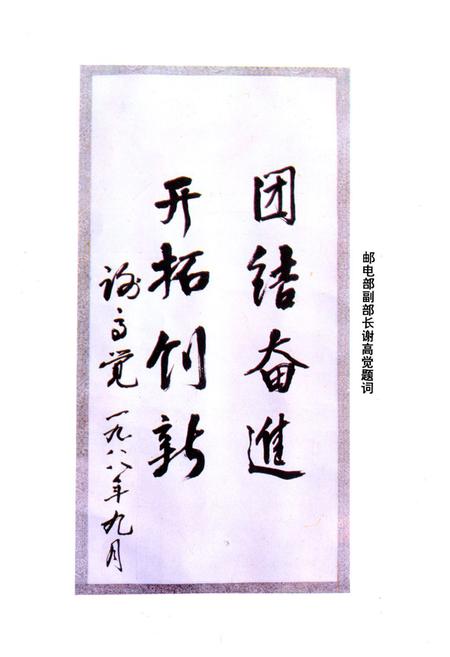 团结奋進
开拓创新
谢高觉
一九八八年九月
邮电部副部长谢高觉题词